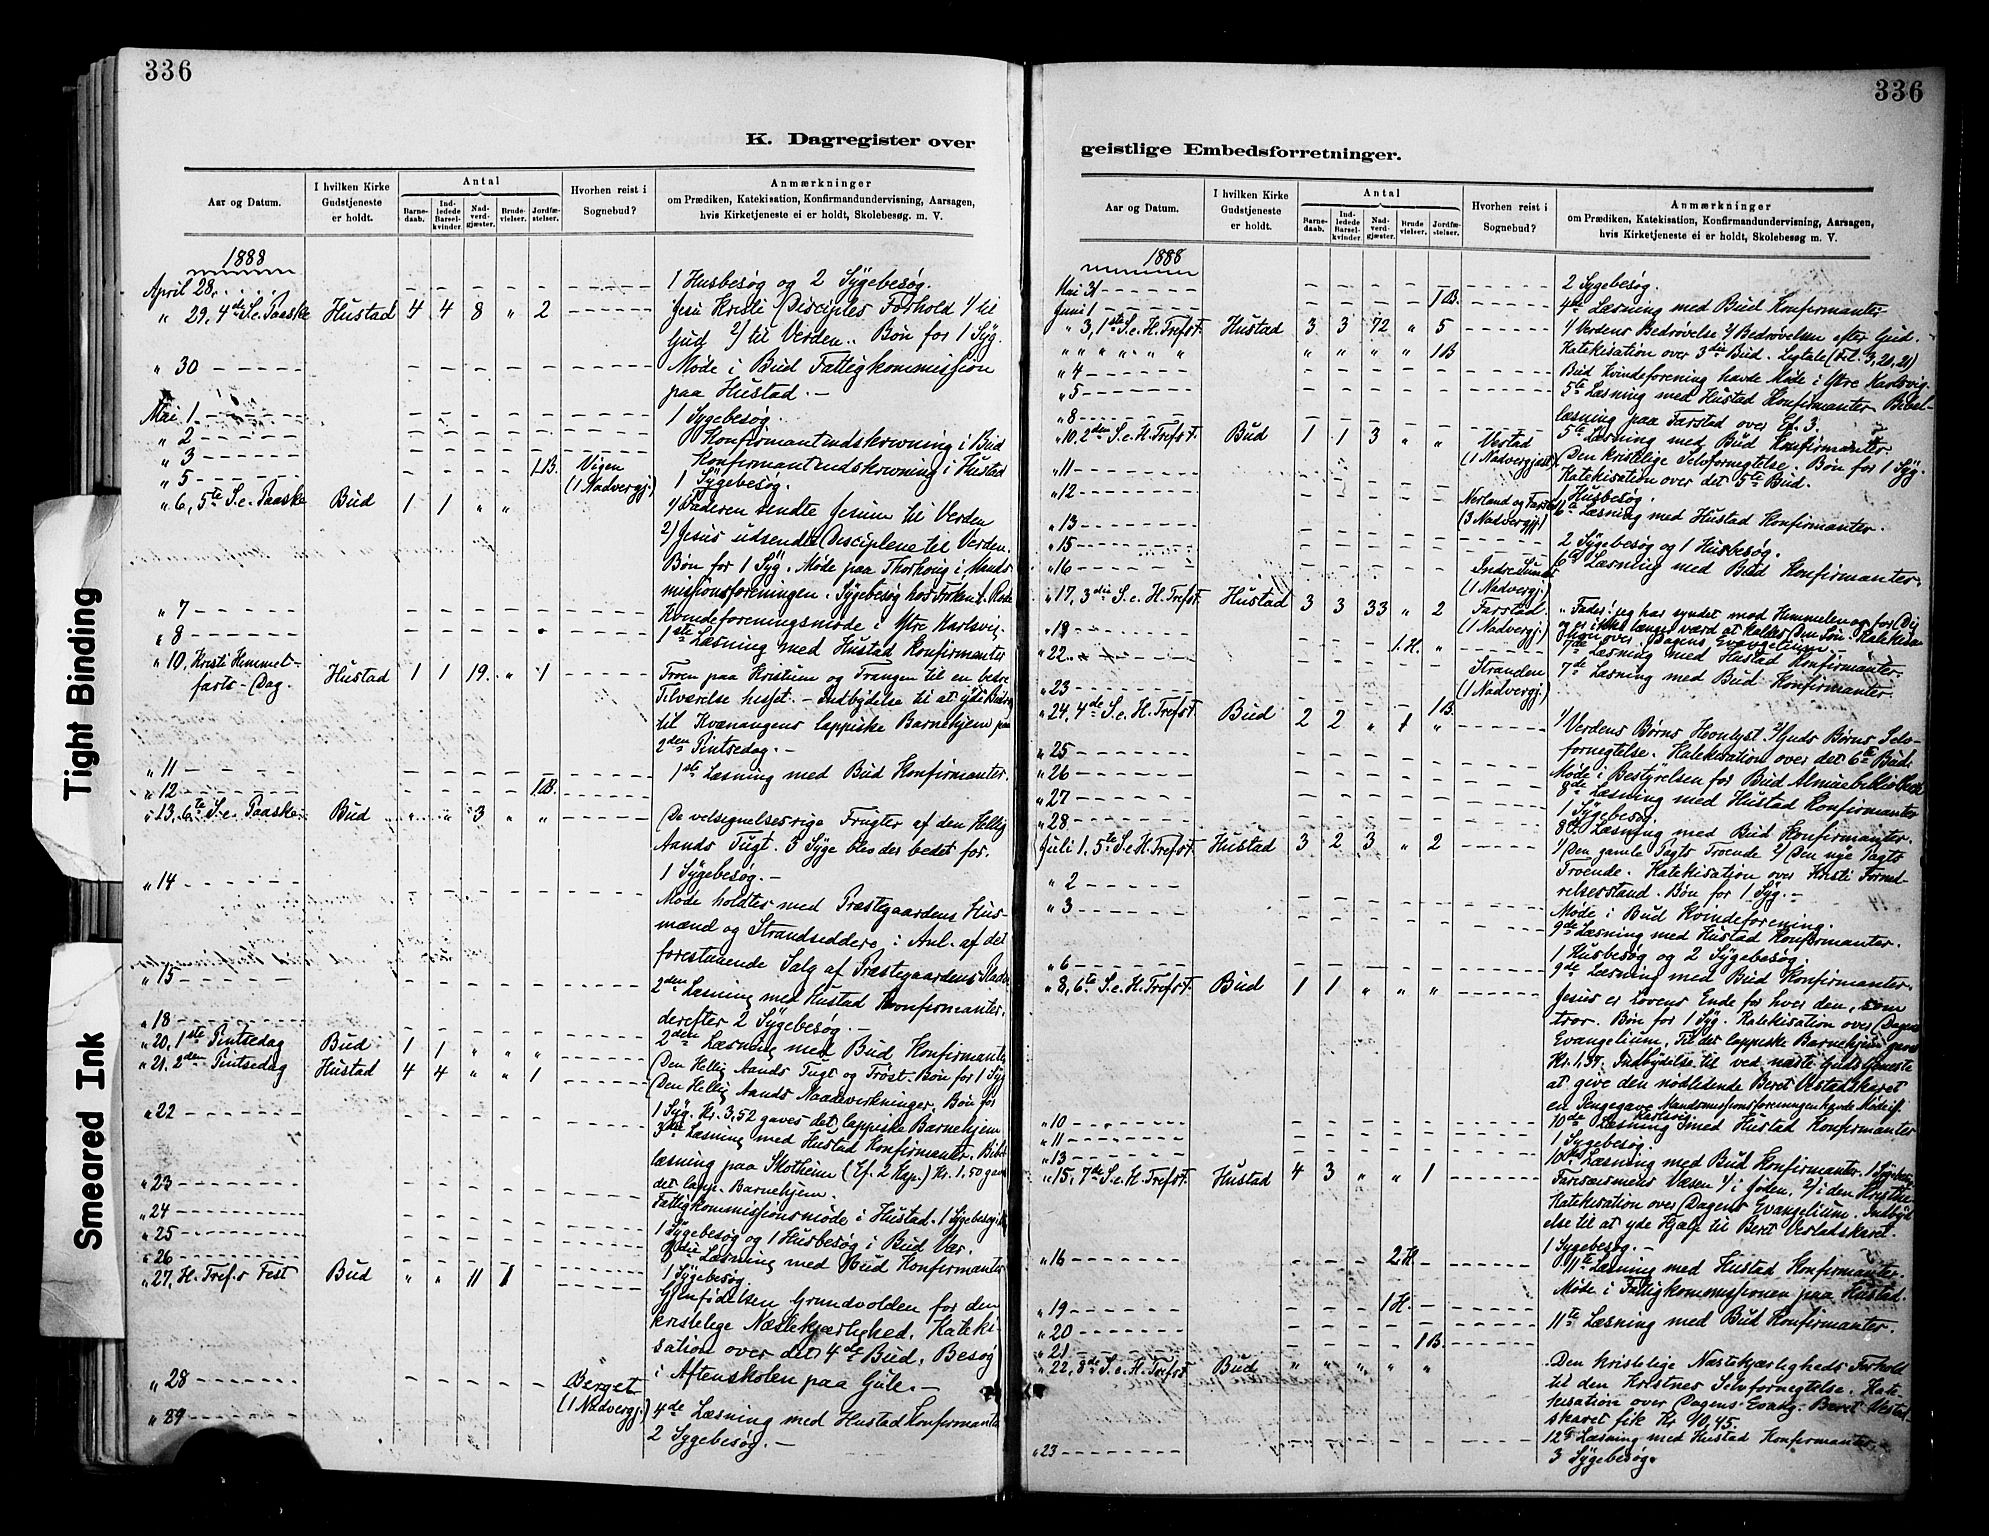 336
K. Dagregister over
Aar og Datum.
I hvilken Kirke Gudstjeneste er holdt.
Antal
Barnedaab.
Indledede Barselkvinder.
Nadverdgjæster.
Brudevielser.
Jordfæstelser.
Hvorhen reist i Sognebud?
Anmærkninger
om Prædiken, Katekisation, Konfirmandundervisning, Aarsagen,
hvis Kirketjeneste ei er holdt, Skolebesøg. m. V.
1888
April 28. 1 Husbesøg og 2 Sygebesøg.
" 29, 4de S. e. Paaske Hustad 4 4 8 " 2 Jesu Kristi Disciples Forhold 1/ til
Gud 2/ til Verden. Bøn for 1 Syg.
" 30 Møde i Bud Fattigkommission
paa Hustad. —
Mai 1. 1 Sygebesøg.
" 2 Konfirmantindskrivning i Bud
" 3 Konfirmantindskrivning i Hustad
" 5 1.B. Vigen (1 Nadvergj.) 1 Sygebesøg.
" 6, 5te S. e. Paaske Bud 1 1 " " 1/ Faderen sendte Jesum til Verden
2) Jesus udsendte Disciplene til Verden.
Bøn for 1 Syg. Møde paa
missionsforeningen. Sygebesøg hos
" 7 Kvindeforeningsmøde i Ytre Karlsvig.
" 8 1ste Læsning med Hustad Konfirmanter
" 10, Kristi Himmel-
farts-Dag. Hustad 1 1 19 " 1 Troen paa Kristum og Trangen til en bedre
Tilværelse hisset. — Indbydelse til at yde Bidrag
til Kvænangens lappiske Barnehjem paa
2den Pintsedag. —
" 11 1ste Læsning med Bud Konfirmanter.
" 12 1.B.
" 13, 6te S. e. Paaske Bud " " 3 " " De velsignelsesrige Frugter af den Hellig
Aands Tugt. 3 Syge blev der bedet for.
" 14 1 Sygebesøg. —
Møde holdtes med Præstegaardens Hus-
mænd og Strandsiddere i Anl. af det
forestaaende Salg af Præstegaardens
" 15 2den Læsning med Hustad Konfirmanter.
derefter 2 Sygebesøg. —
" 18 2den Læsning med Bud Konfirmanter
" 20, 1ste Pintsedag Bud 1 1 " " " Den Hellig Aands Tugt og Trøst. Bøn for 1 Syg
" 21, 2den Pintsedag Hustad 4 4 " " 1 Den Hellig Aands Naadevirkninger. Bøn for
1 Syg. Kr. 3,52 gaves det lappiske Barnehjem
" 22 3die Læsning med Hustad Konfirmanter. Bibel-
læsning paa Skotheim (Ef. 2 Kap.) Kr. 1.50 gaves
det lapp. Barnehjem.
" 23 Fattigkommissionsmøde i Hustad. 1 Sygebesøg
" 24 1 Sygebesøg og 1 Husbesøg i Bud Vær.
" 25 3die Læsning med Bud Konfirmanter
" 26 1 Sygebesøg.
" 27, H. Tref.s Fest Bud " " 11 1 Gjenfødelsen Grundvolden for den
kristelige Næstekjærlighed. Kateki-
sation over det 4de Bud. Besøg
i Aftenskolen paa Gule. —
" 28 Berget (1 Nadvergj.)
" 29 4de Læsning med Hustad Konfirmanter
2 Sygebesøg. —
Tight Binding
Smeared Ink
336
geistlige Embedsforretninger.
Aar og Datum.
I hvilken Kirke Gudstjeneste er holdt.
Antal
Barnedaab.
Indledede Barselkvinder
Nadverdgjæster.
Brudevielser.
Jordfæstelser.
Hvorhen reist i Sognebud?
Anmærkninger
om Prædiken, Katekisation, Konfirmandundervisning, Aarsagen,
hvis Kirketjeneste ei er holdt, Skolebesøg m. V.
1888
Mai 31 2 Sygebesøg.
Juni 1 1 B. 4de Læsning med Bud Konfirmanter
" 3, 1ste S. e. H. Trefst. Hustad 3 3 72 " 5 1/ Verdens Bedrøvelse 2/ Bedrøvelsen efter Gud.
" " " " " " " " " " 1 B Katekisation over 3die Bud. Ligtale (Fil. 3, 20, 21)
" 4 Bud Kvindeforening havde Møde i Ytre Karlsvig.
" 5 5te Læsning med Hustad Konfirmanter. Bibel-
læsning paa Farstad over Ef. 3.
" 8 5te Læsning med Bud Konfirmanter
" 10, 2den S. e. H. Trefst. Bud 1 1 3 " " Vestad (1 Nadvergjæst) Den kristelige Selvfornegtelse. Bøn for 1 Syg.
Katekisation over det 5te Bud.
" 11 1 Husbesøg.
" 12 Nerland og Farstad (3 Nadvergj.) 6te Læsning med Hustad Konfirmanter.
" 13
" 15 2 Sygebesøg og 1 Husbesøg.
" 16 Indre (1 Nadvergj.) 6te Læsning med Bud Konfirmanter.
" 17, 3die S. e. H. Trefst. Hustad 3 3 33 " 2 Farstad (1 Nadvergj.) "Fader! jeg har syndet mod Himmelen og for Dig
og er ikke længer værd at kaldes Din Søn". Katekisa-
tion over Dagens Evangelium. —
" 19 1. H. " 7de Læsning med Hustad Konfirmanter.
" 22 Stranden (1 Nadvergj.) 7de Læsning med Bud Konfirmanter.
" 23 1 B.
" 24, 4de S. e. H. Trefst. Bud 2 2 " 1 " 1/ Verdens Børns Hevnlyst 2/ Guds Børns Selv-
fornegtelse. Katekisation over det 6te Bud.
" 25 Møde i Bestyrelsen for Bud
" 26 8de Læsning med Hustad Konfirmanter
" 27 1 Sygebesøg.
" 28 8de Læsning med Bud Konfirmanter.
Juli 1. 5te S. e. H. Trefst. Hustad 3 2 3 " 2 1/ Den gamle Pagts Troende 2/ Den nye Pagts
Troende. Katekisation over Kristi Forned-
relsesstand. Bøn for 1 Syg. —
" 2 Møde i Bud Kvindeforening.
" 3 9de Læsning med Hustad Konfirmanter.
1 Husbesøg og 2 Sygebesøg.
" 6 9de Læsning med Bud Konfirmanter.
" 8, 6te S. e. H. Trefst. Bud 1 1 " " " Jesus er Lovens Ende for hver den, som
tror. Bøn for 1 Syg. Katekisation over Dagens
Evangelium. Til det lappiske Barnehjem gaves
Kr. 1.37. Indbydelse til ved næste Gudstjeneste
at give den nødlidende Beret Vestadskaret
en Pengegave. Mandsmissionsforeningen havde Møde i
Karlsvig.
" 10 10de Læsning med Hustad Konfirmanter
" 11 1 Sygebesøg.
" 13 10de Læsning med Bud Konfirmanter. 1 Sygebesøg.
" 15, 7de S. e. H. Trefst. Hustad 4 3 " " 1 Farisæernes Væsen 1/ i Jøden. 2/ i den Kristne
Katekisation over Dagens Evangelium. Indbyd-
else til at yde Hjælp til Beret Vestadskaret.
1 Sygebesøg. —
" 16 2 H. 11te Læsning med Hustad Konfirmanter.
Møde i Fattigkommissionen paa Hustad.
" 19 1 H.
" 20 11te Læsning med Bud Konfirmanter.
" 21 1 B.
" 22, 8de S. e. H. Trefst. Bud " " " " " Den kristelige Næstekjærligheds Forhold
til den Kristnes Selvfornegtelse. Kate-
kisation over Dagens Evang. Beret Vestad-
skaret fik Kr 40,45.
" 23 12te Læsning med Hustad Konfirmanter
3 Sygebesøg.